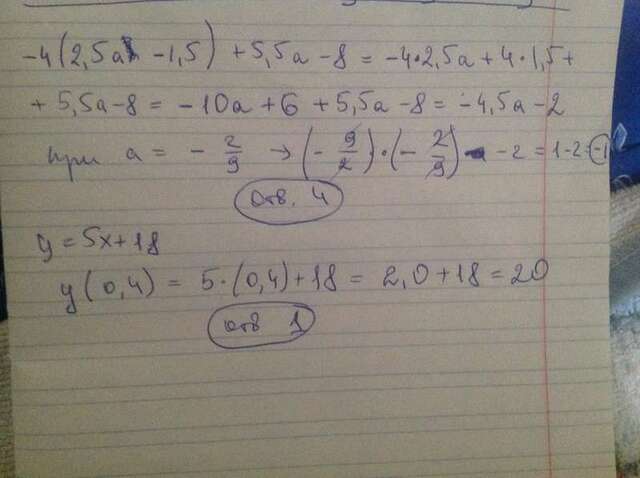 -4(2,5a -1,5) +5,5a -8 = -4·2,5a + 4·1,5+
+ 5,5a-8 = -10a + 6 + 5,5a -8 = -4,5a -2
при a = - 2/9 → (- 9/2)·(- 2/9) -2 = 1-2 = -1
Отв. 4
y = 5x+18
y(0,4) = 5·(0,4)+18 = 2,0+18 = 20
отв 1